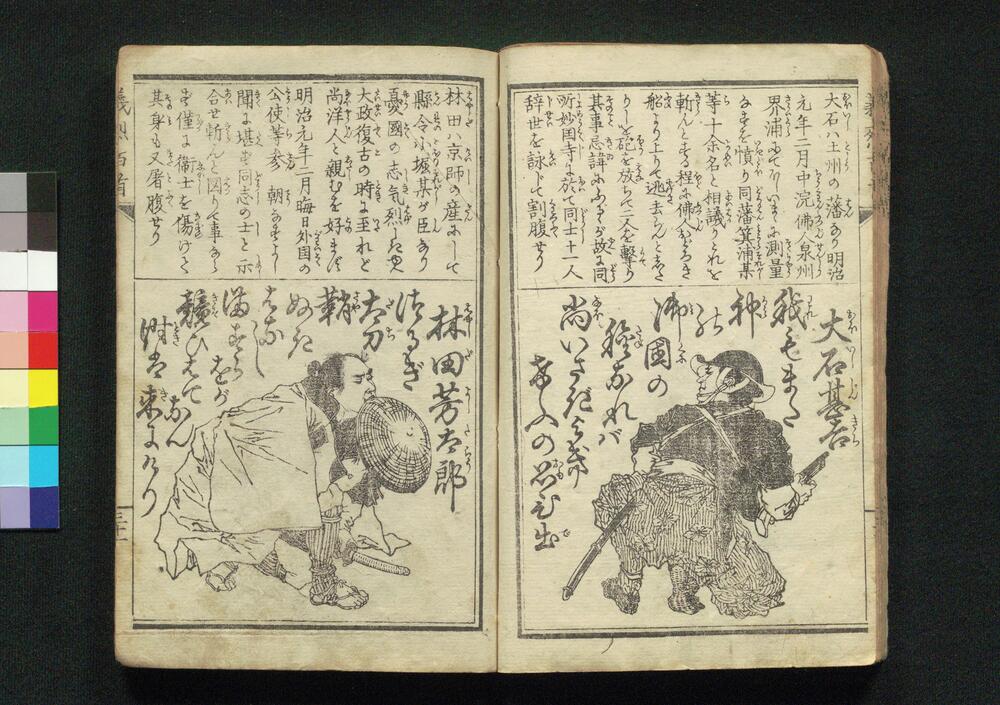 大石ハ土州の藩なり明治
元年二月中浣佛人泉州
界浦に
測量
なすを憤り同藩箕浦某
等十余名と相議りこれを
斬んとする程に佛人おどろき
船より上りて逃去らんとせし
りしを砲を放ちて二人を撃り
其事忌諱にふるゝが故に同
所妙国寺に於て同士十一人
辞世を詠じて割腹せり
大石甚吉
我もまた
神の
御國の
種なれバ
尚いさぎよき
けふの思ひ出
林田ハ京師の産にして
縣令小堀某が臣なり
憂國の志気烈しきゆゑ
大政復古の時に至れど
尚洋人と親むを好まず
明治元年二月晦日外国の
公使等参朝なすよし
聞に堪ず同志の士と示
合せ斬んと図りて事なら
ず僅に衛士を傷けて
其身も又屠腹せり
林田芳太郎
つるぎ
太刀
鞘
ぬき
はなし
満すらをが
競ひはてなん
時は来にけり
義烈百首